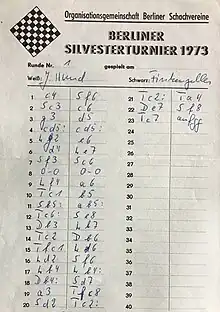 Organisationsgemeinschaft Berliner Schachvereine
BERLINER
SILVESTERTURNIER 1973
Runde Nr. 1 gespielt am
Weiß: J. Hund Schwarz:
1 c4 Sf6 21 Tc2: Ta4
2 Sc3 c6 22 De7 Sf8
3 g3 d5 23 Tc7 aufg
4 cd5: cd5: 24
5 Lg2 e6 25
6 d4 Le7 26
7 Sf3 Sc6 27
8 0-0 0-0 28
9 Lf4 a6 29
10 Tc1 b5 30
11 Sb5: ab5: 31
12 Tc6: Se8 32
13 Db3 Lb7 33
14 Tc2 Db6 34
15 Tfc1 Ld6 35
16 Ld2 f6 36
17 Lb4 Lb4: 37
18 Db4: Sd7 38
19 a3 Tfc8 39
20 Sd2 Tc2: 40